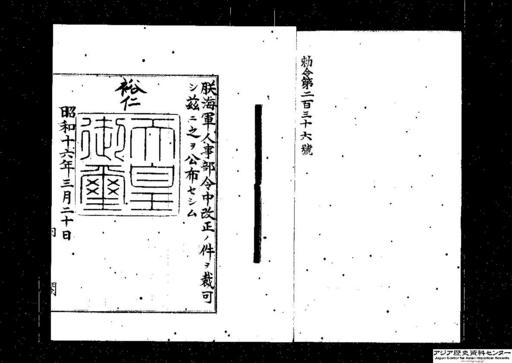 朕海軍人事部令中改正ノ件ヲ裁可
シ茲ニ之ヲ公布セシム
裕仁
天皇
御璽
昭和十六年三月二十日
内
閣
勅令第二百三十六號
アジア歴史資料センター
Japan Center for Asian Historical Records